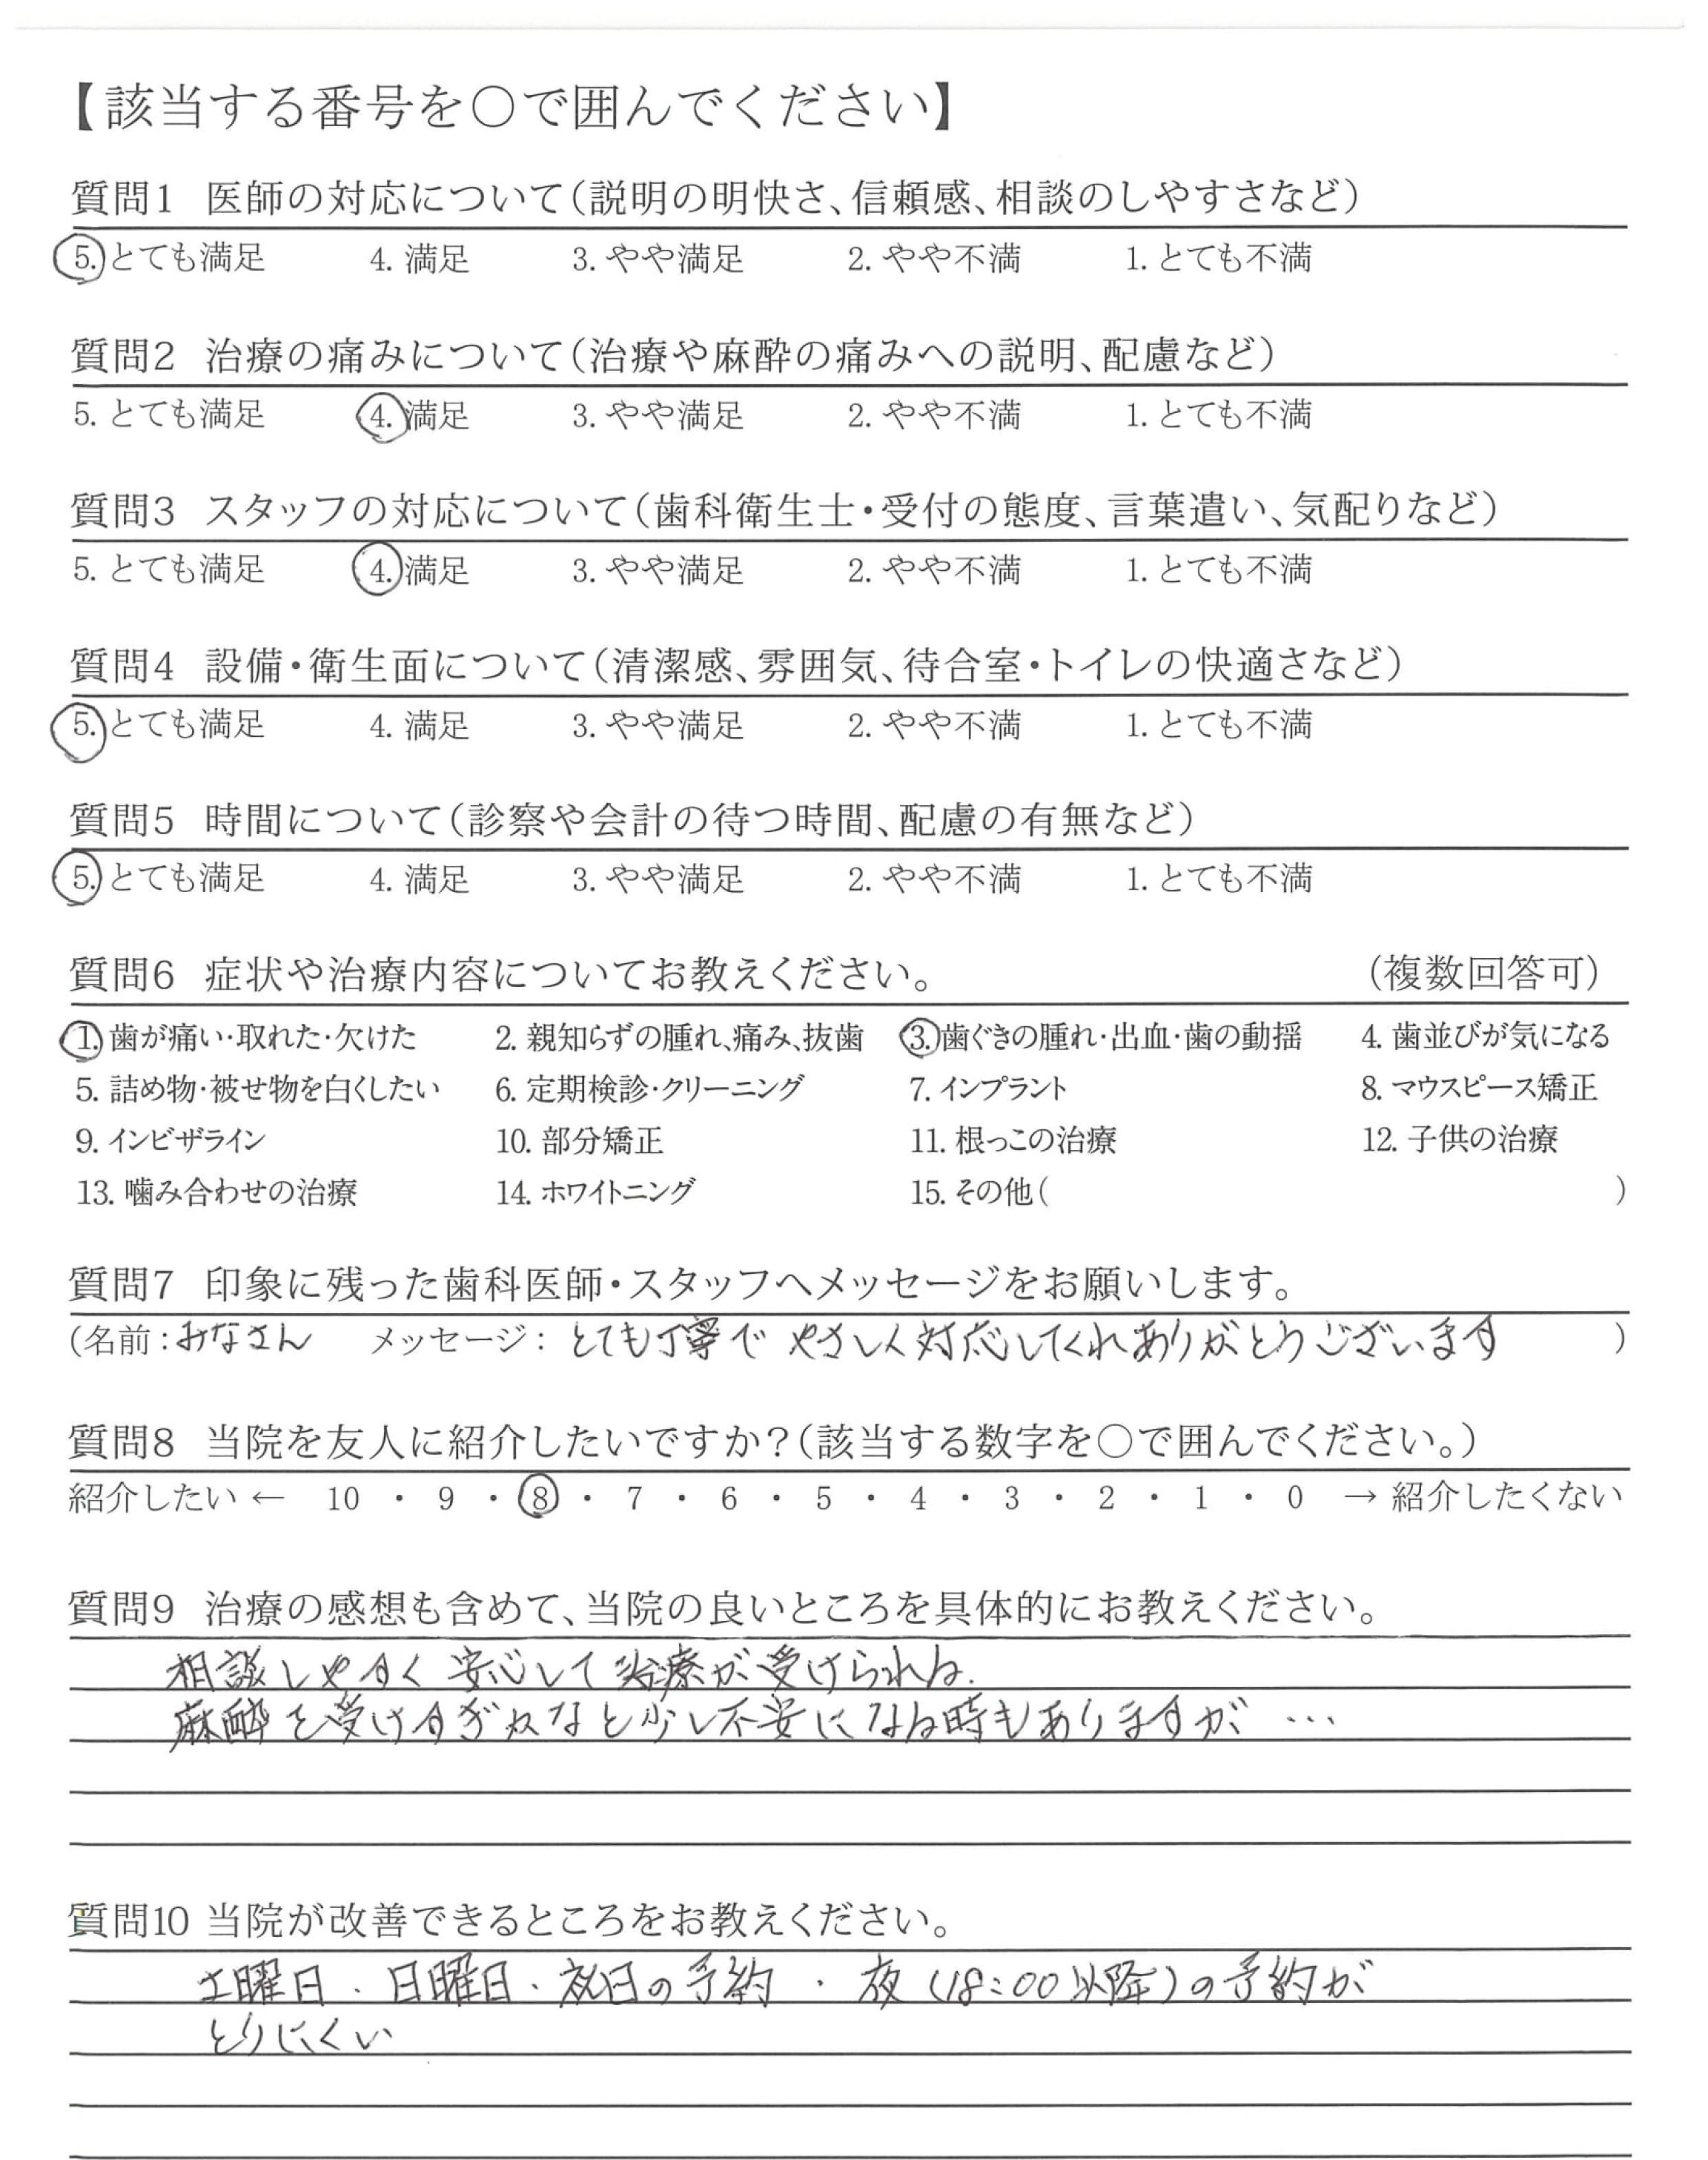 【該当する番号を○で囲んでください】
質問1 医師の対応について(説明の明快さ、信頼感、相談のしやすさなど)
5. とても満足 4. 満足 3. やや満足 2. やや不満 1. とても不満
質問2 治療の痛みについて(治療や麻酔の痛みへの説明、配慮など)
5. とても満足 4. 満足 3. やや満足 2. やや不満 1. とても不満
質問3 スタッフの対応について(歯科衛生士・受付の態度、言葉遣い、気配りなど)
5. とても満足 4. 満足 3. やや満足 2. やや不満 1. とても不満
質問4 設備・衛生面について(清潔感、雰囲気、待合室・トイレの快適さなど)
5. とても満足 4. 満足 3. やや満足 2. やや不満 1. とても不満
質問5 時間について(診察や会計の待つ時間、配慮の有無など)
5. とても満足 4. 満足 3. やや満足 2. やや不満 1. とても不満
質問6 症状や治療内容についてお教えください。 (複数回答可)
1. 歯が痛い・取れた・欠けた 2. 親知らずの腫れ、痛み、抜歯 3. 歯ぐきの腫れ・出血・歯の動揺 4. 歯並びが気になる
5. 詰め物・被せ物を白くしたい 6. 定期検診・クリーニング 7. インプラント 8. マウスピース矯正
9. インビザライン 10. 部分矯正 11. 根っこの治療 12. 子供の治療
13. 噛み合わせの治療 14. ホワイトニング 15. その他( )
質問7 印象に残った歯科医師・スタッフへメッセージをお願いします。
(名前:みなさん メッセージ: とても丁寧で やさしく対応してくれありがとうございます )
質問8 当院を友人に紹介したいですか?(該当する数字を○で囲んでください。)
紹介したい ← 10 ・ 9 ・ 8 ・ 7 ・ 6 ・ 5 ・ 4 ・ 3 ・ 2 ・ 1 ・ 0 → 紹介したくない
質問9 治療の感想も含めて、当院の良いところを具体的にお教えください。
相談しやすく 安心して治療が受けられる.
麻酔を受けすぎかなと少し不安になる時もありますが …
質問10 当院が改善できるところをお教えください。
土曜日 . 日曜日 . 祝日の予約 . 夜 (18:00以降)の予約が
とりにくい